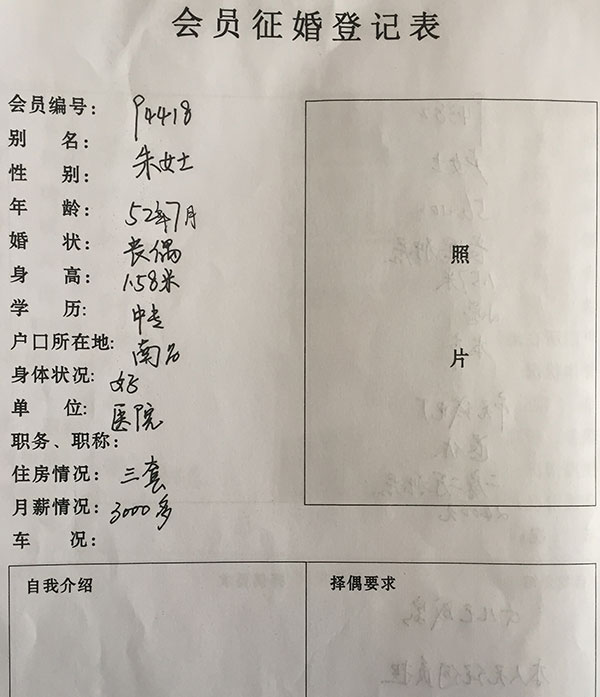 会员征婚登记表
会员编号: 94418
别 名: 朱女士
性 别:
年 龄: 52年7月
婚 状: 丧偶
身 高: 1.58米
学 历: 中专
户口所在地: 南
身体状况: 好
单 位: 医院
职务、职称:
住房情况: 三套
月薪情况: 3000多
车 况:
照
片
自我介绍
择偶要求